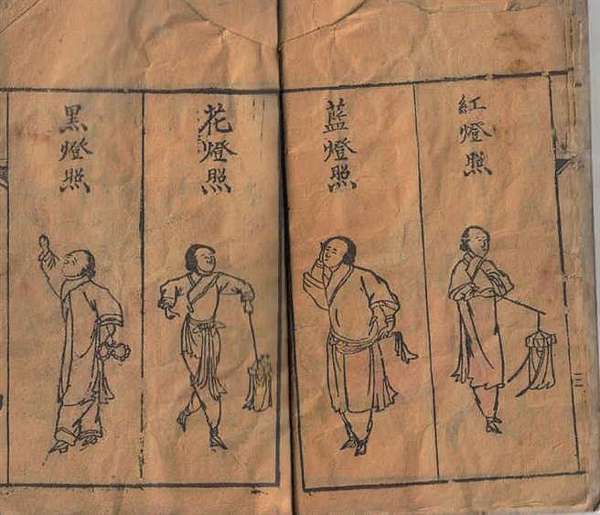 紅燈照
藍燈照
花燈照
黑燈照
二